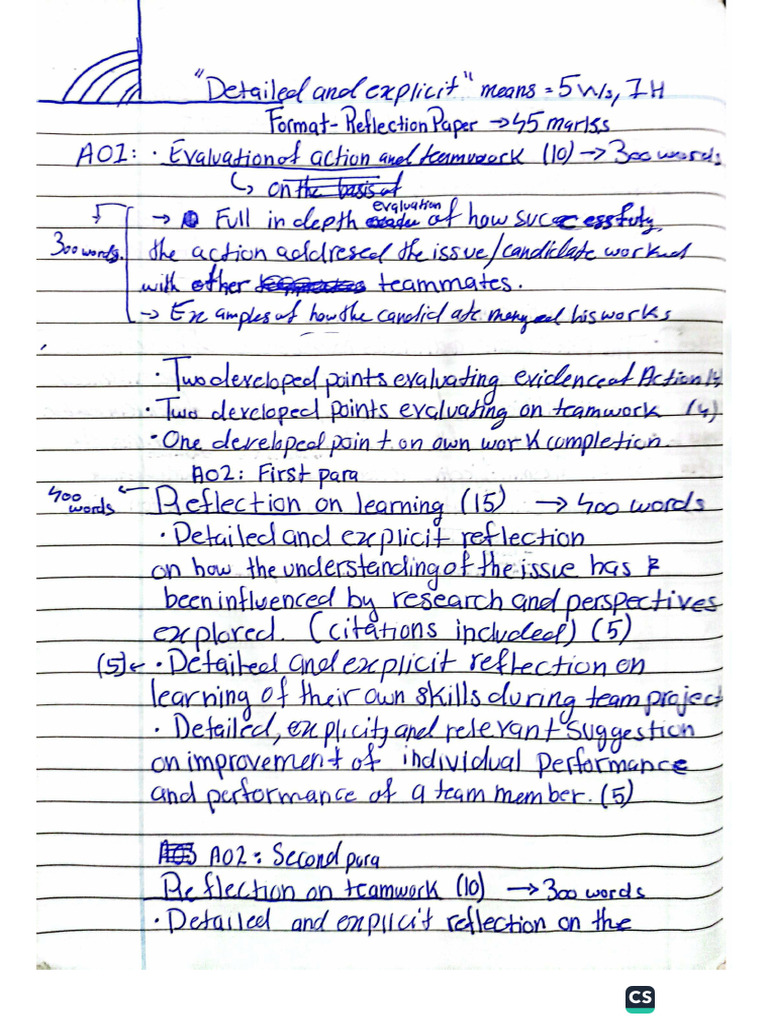 "Detailed and explicit" means = 5 W's, 1H
Format - Reflection Paper → 45 marks
AO1: · Evaluation of action and teamwork (10) → 300 words
↳ on the basis of
→ Full in depth evaluation of how successfuly
300 words. the action addresed the issue/candidate worked
with other teammates.
→ Examples of how the candidate manged his works
· Two developed points evaluating evidence of Action (4
· Two developed points evaluating on teamwork (4)
· One developed point on own work completion.
AO2: First para
400 words ← Reflection on learning (15) → 400 words
· Detailed and explicit reflection
on how the understanding of the issue has
been influenced by research and perspectives
explored. (citations included) (5)
(5) ← · Detailed and explicit reflection on
learning of their own skills during team project
· Detailed, explicit, and relevant suggestion
on improvement of individual performance
and performance of a team member. (5)
AO2: Second para
Reflection on teamwork (10) → 300 words
· Detailed and explicit reflection on the
CS